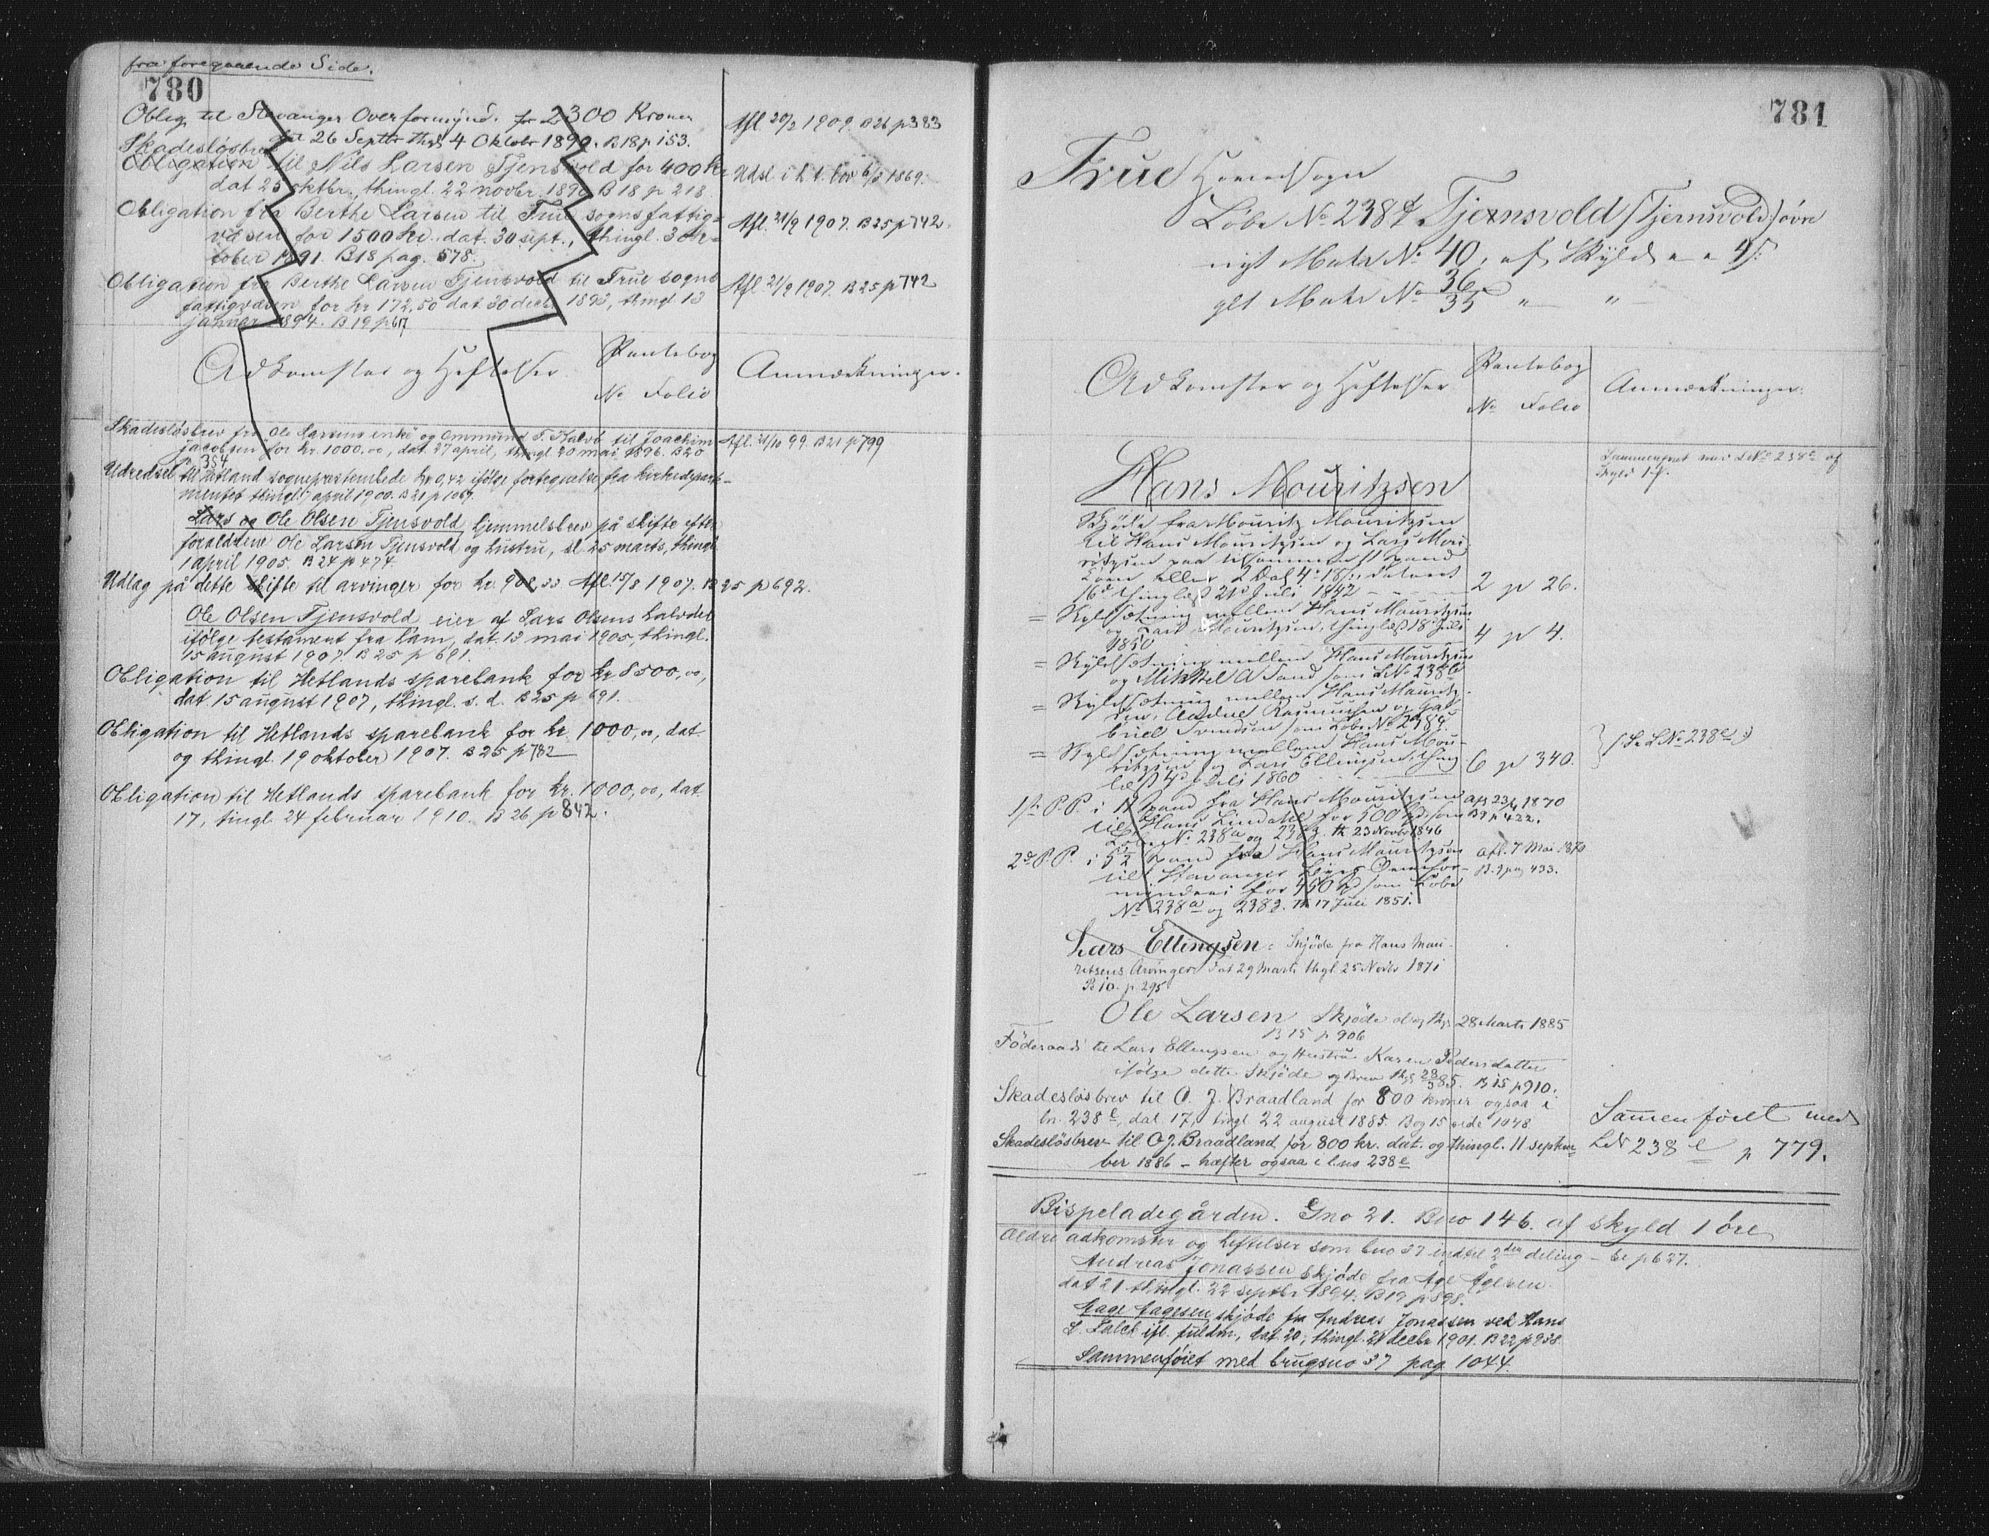 fra foregaaende Side.
780
Oblig. til Stavanger Overformynd. for 2300 Kroner
dat 26 Septbr thgl 4 Oktobr 1890. B18 p 153.
Afl 20/2 1909 B26 p383
Skadesløsbrev
Obligation til Nils Larsen Tjensvold for 400 kr
dat 25 oktbr., thingl. 22 novbr. 1890 B 18 p 218
Obligation fra Berthe Larsen til Frue sogns fattig-
væsen for 1500 kr. dat. 30 sept., thingl. 3 ok-
tober 1891. B18 pag. 578.
Afl. 21/9 1907. B25 p742.
Obligation fra Berthe Larsen Tjensvold til Frue sogns
fattigvæsen for kr 172,50 dat 30 decb 1893, thingl 13
januar 1894. B19 p617
Afl 21/9 1907. B25 p742
Adkomster og Heftelser
Pantebog
No Folio
Anmærkninger.
Skadesløsbrev fra Ole Larsens enke og Ommund T. Kalvb til Joachim
Jacobsen for kr. 1000.00, dat. 27 april, thingl 20 mai 1896. B20
p 354
Afl. 21/10 99. B21 p799
Udredsel til Hetland sogneprestembede kr 0,42 ifølge fortegnelse fra kirkedepart-
mentet thingl. april 1900. B21 p 1069.
Lars og Ole Olsen Tjensvold, hjemmelsbrev på skifte efter
forældrene Ole Larsen Tjensvold og hustru, sl. 25 marts, thingl
1 april 1905 B24 p 474
Udlag på dette skifte til arvinger for kr. 902,33 Afl. 15/8 1907. B25 p 692.
Ole Olsen Tjensvold eier af Lars Olsens halvdel
ifølge testament fra ham, dat. 13 mai 1905, thingl.
15 august 1907. B 25 p 691.
Obligation til Hetlands sparebank for kr 8500,00,
dat. 15 august 1907, thingl. s. d. B25 p 691.
Obligation til Hetlands sparebank for kr. 1000,00, dat.
og thingl. 19 oktober 1907. B25 p 782
Obligation til Hetlands sparebank for kr. 1000,00, dat
17, tingl 24 februar 1910. B 26 p 842.
781
Frue Hovedsogn
Løbe No 238d Tjernsvold (Tjernsvold) øvre
nyt Matr No 40, af Skyld
glt Matr No 36/35 " "
Adkomster og Heftelser
Pantebog
No Folio
Anmærkninger.
Hans Mouritzsen
Sammenført med LNo 238e af
Skyld
Skjøde fra Mouritz Mouritzsen
til Hans Mouritzsen og Lars Mou-
ritzsen paa tilsammen Spand
Korn eller 2 Dal 4 18 s, dateret
16de thinglæst 21de Juli 1842
2 p 26.
= Skyldsætning mellem Hans Mouritzsen
og Lars Mouritzsen, thinglæst 18 Juli
1850
4 p 4.
= Skyldsætning mellem Hans Mouritzsen
og Mikkel A Sand som LNo 238b
= Skyldsætning mellem Hans Mouritz-
sen, Andreas Rasmussen og Gab-
riel Svendsen som Løbe No 238d
= Skyldsætning mellem Hans Mou-
ritzsen og Lars Ellingsen, thing
læst 4de Juli 1860
6 p 340.
(Se LNo 238e)
1ste P.P. i Spand fra Hans Mouritzsen
til Hans Lindahl for 500 Spd, som
Løbe No 238a og 238 tl. 23 Novbr 1846
afl 23/ 1870
B9 p 422.
2de P.P. i Spand fra Hans Mouritzsen
til Stavanger Byes Overfor-
mynderi for 450 Spd som Løbe
No 238a og 238 tl. 17 Juli 1851.
afl. 7 Mai 1870
B. 9 pag 433.
Lars Ellingsen. Skjøde fra Hans Mou-
ritsens Arvinger Dat 29 Marts thgl 25 Novbr 1871
B 10. p. 295
Ole Larsen Skjøde og thgl 28 Marts 1885
B 15 p 906
Føderaad til Lars Ellingsen og Hustru Karen Pedersdatter
ifølge dette Skjøde og Brev thgl 28/3 85. B 15 p 910.
Skadesløsbrev til O. J. Braadland for 800 kroner ogsaa i
ln. 238e, dat. 17, tingl 22 august 1885. Bog 15 side 1048
Skadesløsbrev til O. J. Braadland for 800 kr. dat. og thingl. 11 septem-
ber 1886 – hæfter ogsaa i l.no 238e
Sammenføiet med
LNo 238e p 779.
Bispeladegården. Gno 21. Bno 146. af skyld 1 øre
Ældre adkomster og heftelser som bno 37 indtil 2den deling – se p 627.
Andreas Jonassen skjøde fra Åge Ågesen
dat 21 thingl. 22 septbr 1894. B19 p 898.
Aage Aagesen skjøde fra Andreas Jonassen ved Hans
L. Falck ifl. fuldm., dat. 20, thingl. 21 decbr 1901. B 22 p 938
Sammenføiet med brugsno 37 pag 1044.